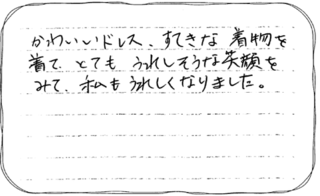 かわいいドレス、すてきな 着物を
着て、とても うれしそうな笑顔を
みて、私も うれしくなりました。